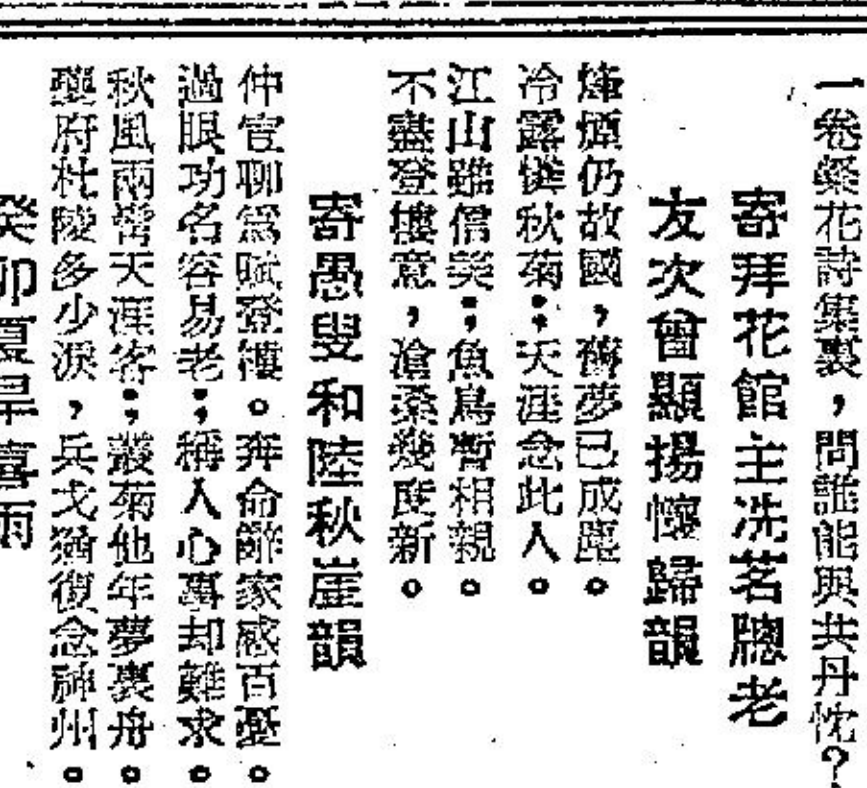 一卷藥花詩集裏，問誰能與共丹忱？
寄拜花館主洗茗聰老
友次曾顯揚懷歸韻
烽煙仍故國，舊夢已成塵。
冷露摧秋菊；天涯念此人。
江山雖信美；魚鳥暫相親。
不盡登樓意，滄桑幾度新。
寄愚叟和陸秋崖韻
仲宣聊寫賦登樓。奔命辭家感百憂。
過眼功名容易老；稱人心事却難求。
秋風兩鬢天涯客；叢菊他年夢裏舟。
夔府杜陵多少淚，兵戈猶復念神州。
癸卯夏旱喜雨